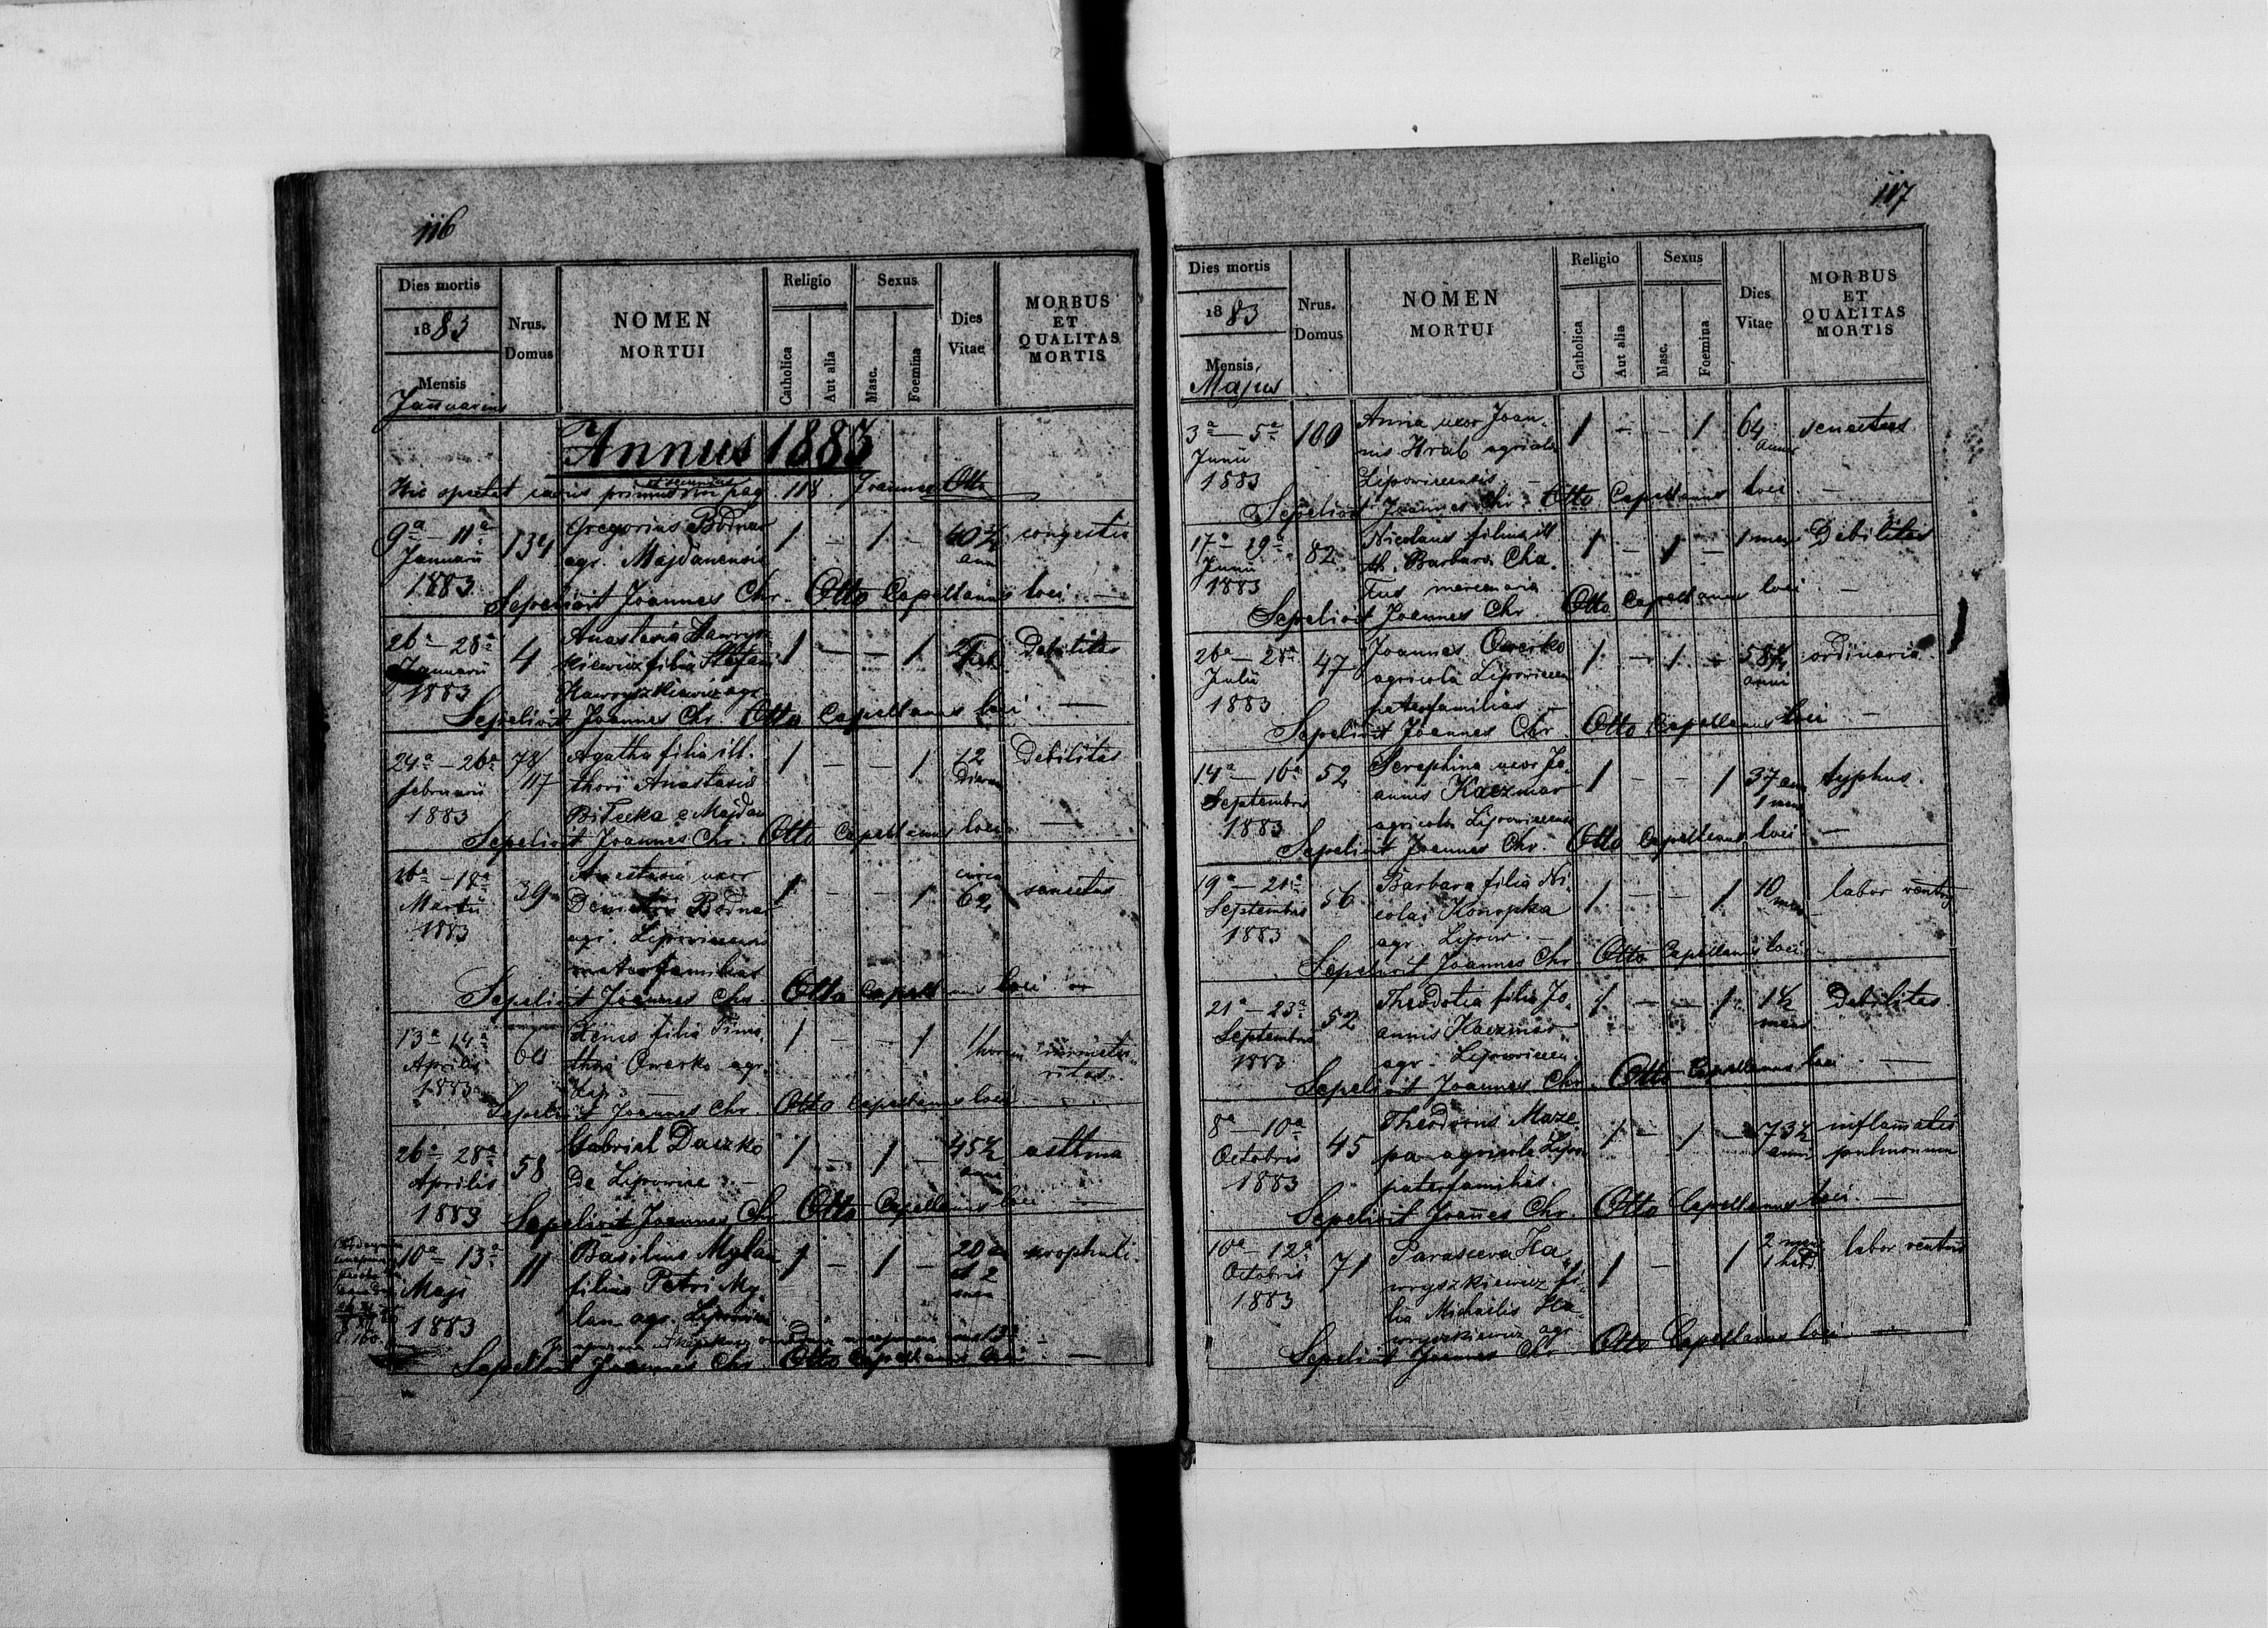 116
Dies mortis
1883
Mensis
Januarius
Nrus.
Domus
NOMEN
MORTUI
Religio
Catholica
Aut alia
Sexus
Masc.
Foemina
Dies
Vitae
MORBUS
ET
QUALITAS
MORTIS
Annus 1883
Hic spectat casus primus pag. 118. Joannes Otto
9a — 11a Januarii 1883
134
Gregorius Bodnar
agr. Majdanensis
1 — 1 —
ann
congestio
Sepelivit Joannes Chr. Otto Capellanus loci —
26a — 28a Januarii 1883
4
Anastasia Hawrysz
kiewicz filia Stefani
Hawryszkiewicz agr.
1 — — 1
Debilitas
Sepelivit Joannes Chr. Otto Capellanus loci —
24a — 26a Februarii 1883
78/117
Agatha filia ill.
thori Anastasia
e Majdan
1 — — 1
12
Dierum
Debilitas
Sepelivit Joannes Chr. Otto Capellanus loci —
16a — 18a Martii 1883
39
Anastasia uxor
Demetri Bodnar
agr.
materfamilias
1 — — 1
circa
62
senectus
Sepelivit Joannes Chr. Otto Capellanus loci
13a 14a Aprilis 1883
filia Timo
thei Owerko agr.
Lip. —
1 — — 1
1 horam
immatu
ritas
Sepelivit Joannes Chr. Otto Capellanus loci
26a 28a Aprilis 1883
58
Gabriel Daczko
de Lipowice —
1 — 1 —
45½
anni
asthma
Sepelivit Joannes Chr. Otto Capellanus loci —
10a — 13a Maji 1883
11
Basilius Mylan
filius Petri My
lan agr.
1 — 1 —
20 an
et 2
men
Sepelivit Joannes Chr. Otto Capellanus loci —
117
Dies mortis
1883
Mensis
Majus
Nrus.
Domus
NOMEN
MORTUI
Religio
Catholica
Aut alia
Sexus
Masc.
Foemina
Dies
Vitae
MORBUS
ET
QUALITAS
MORTIS
3a — 5a Junii 1883
100
Anna uxor Joan
nis Hrab agricola
Lipowicensis —
1 — — 1
64
annor
senectus
Sepelivit Joannes Chr. Otto Capellanus loci —
17a — 19a Junii 1883
82
Nicolaus filius ill
th. Barbara Cha
1 — 1 —
1 mens
Debilitas
Sepelivit Joannes Chr. Otto Capellanus loci —
26a — 28a Julii 1883
47
Joannes Owerko
agricola Lipowicen
paterfamilias —
1 — 1 —
anni
ordinaria
Sepelivit Joannes Chr. Otto Capellanus loci —
14a — 16a Septembris 1883
52
Seraphina uxor Jo
annis Kaczmar
agricola Lipowicensis
1 — — 1
37 ann
1 men
typhus
Sepelivit Joannes Chr. Otto Capellanus loci —
19a — 21a Septembris 1883
56
Barbara filia Ni
colai Konopka
agr. Lipow. —
1 — — 1
10
men
labor ventris
Sepelivit Joannes Chr. Otto Capellanus loci
21a — 23a Septembris 1883
52
Theodotia filia Jo
annis Kaczmar
agr. Lipowicen.
1 — — 1
1½
mens
Debilitas
Sepelivit Joannes Chr. Otto Capellanus loci —
8a — 10a Octobris 1883
45
Theodorus Maze
pa agricola Lipow
paterfamilias.
1 — 1 —
73½
anni
inflamatio
pulmonum
Sepelivit Joannes Chr. Otto Capellanus loci —
10a — 12a Octobris 1883
71
Parasceva Ha
wryszkiewicz fi
lia Michaelis Ha
wryszkiewicz agr
1 — 1
2 mens
1 hebd.
labor ventris
Sepelivit Joannes Chr. Otto Capellanus loci —